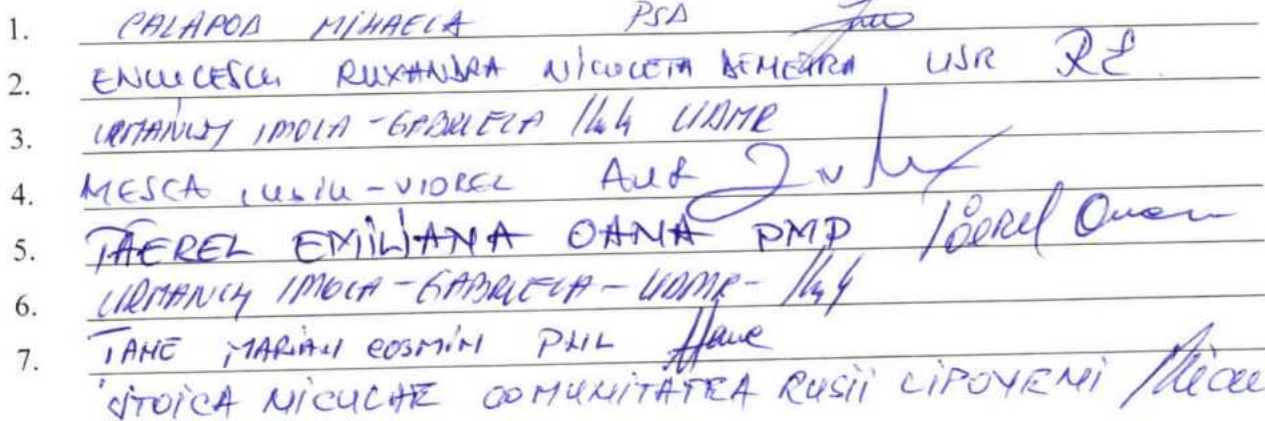 1. CALAPOD MIHAELA PSD
2. ENCULESCU RUXANDRA NICOLETA USR RE
3. URMANCZY IMOLA-GABRIELA UDMR
4. MESCA IULIU-VIOREL AUR
5. TAEREL EMILIANA OANA PMP Taerel Oana
6. URMANCZY IMOLA-GABRIELA-UDMR-
7. TANE MARIAN COSMIN PNL Tane
STOICA NICULAE COMUNITATEA RUSII LIPOVENI